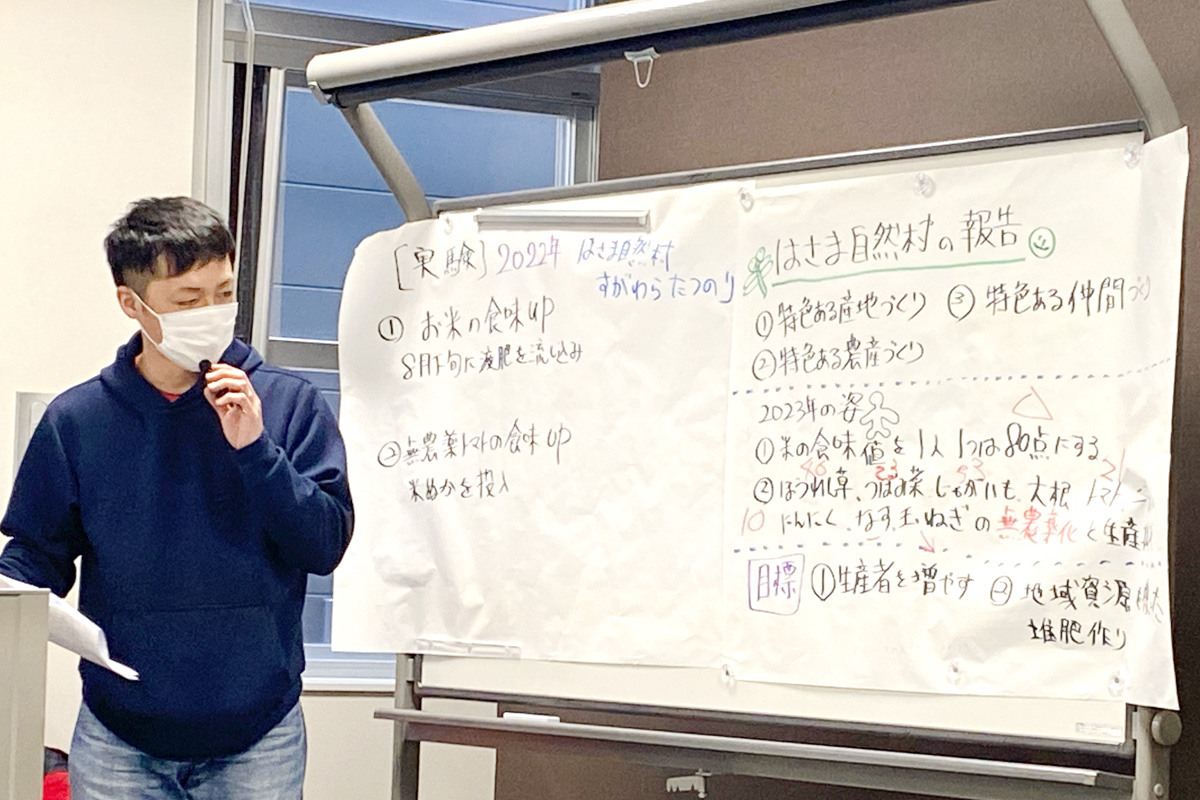 [実験] 2022年 はさま自然村
すがわら たつのり
① お米の食味up
8月下旬に液肥を流し込み
② 無農薬トマトの食味up
米ぬかを投入
はさま自然村の報告
① 特色ある産地づくり ③ 特色ある仲間づくり
② 特色ある農産づくり
2023年の姿
① 米の食味値を1人1つは80点にする
② ほうれん草、つぼみ菜 じゃがいも 大根 トマト
10 にんにく、なす、玉ねぎの無農薬化と生産
目標 ① 生産者を増やす ② 地域資源
堆肥作り